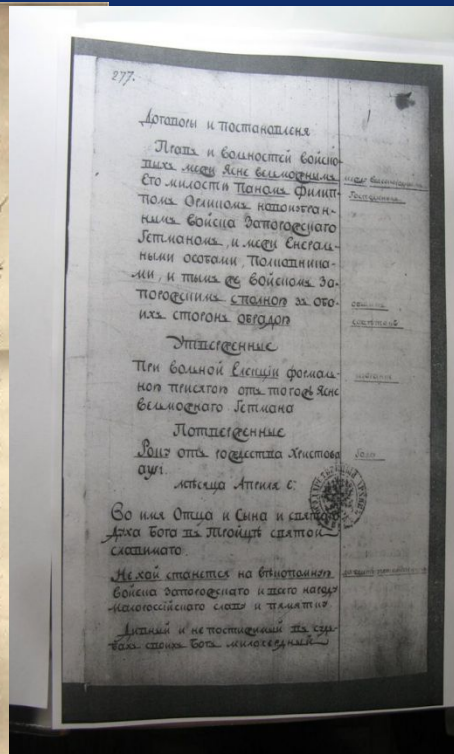 277.
Договоры и постановленя
Правъ и волностей войско-
выхъ межи Ясне велможнымъ
Его милости Паномъ Филип-
помъ Орликомъ новоизбран-
нымъ Войска Запорожскаго
Гетманомъ, и межи Енерал-
ными особами, Полковника-
ми, и тымъ же Войскомъ За-
порожскимъ сполною за обо-
ихъ сторонъ обрадою
Утверженные
При волной Елекции формал-
ною присягою отъ тогожъ Ясне
велможнаго Гетмана
Потверженные
Року отъ рождества Христова
аψι.
мѣсяца Априля е:
Во имя Отца и Сына и святаго
Духа Бога въ Тройцѣ святой
славимаго.
Нехай станется на вѣкопомную
Войска Запорожскаго и всего народу
малороссійскаго славу и памятию
Дивный и непостижимый въ судь-
бахъ своихъ Богъ милосердный